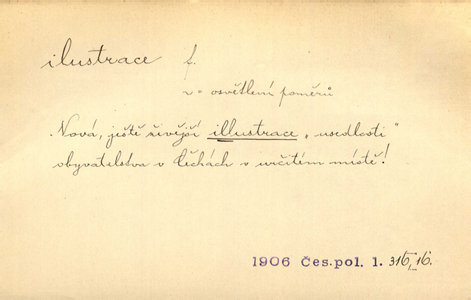 ilustrace f.
v = osvětlení poměrů
Nová, ještě živější illustrace „usedlosti“
obyvatelstva v Čechách v určitém místě!
1906 Čes. pol. 1. 316, 16.